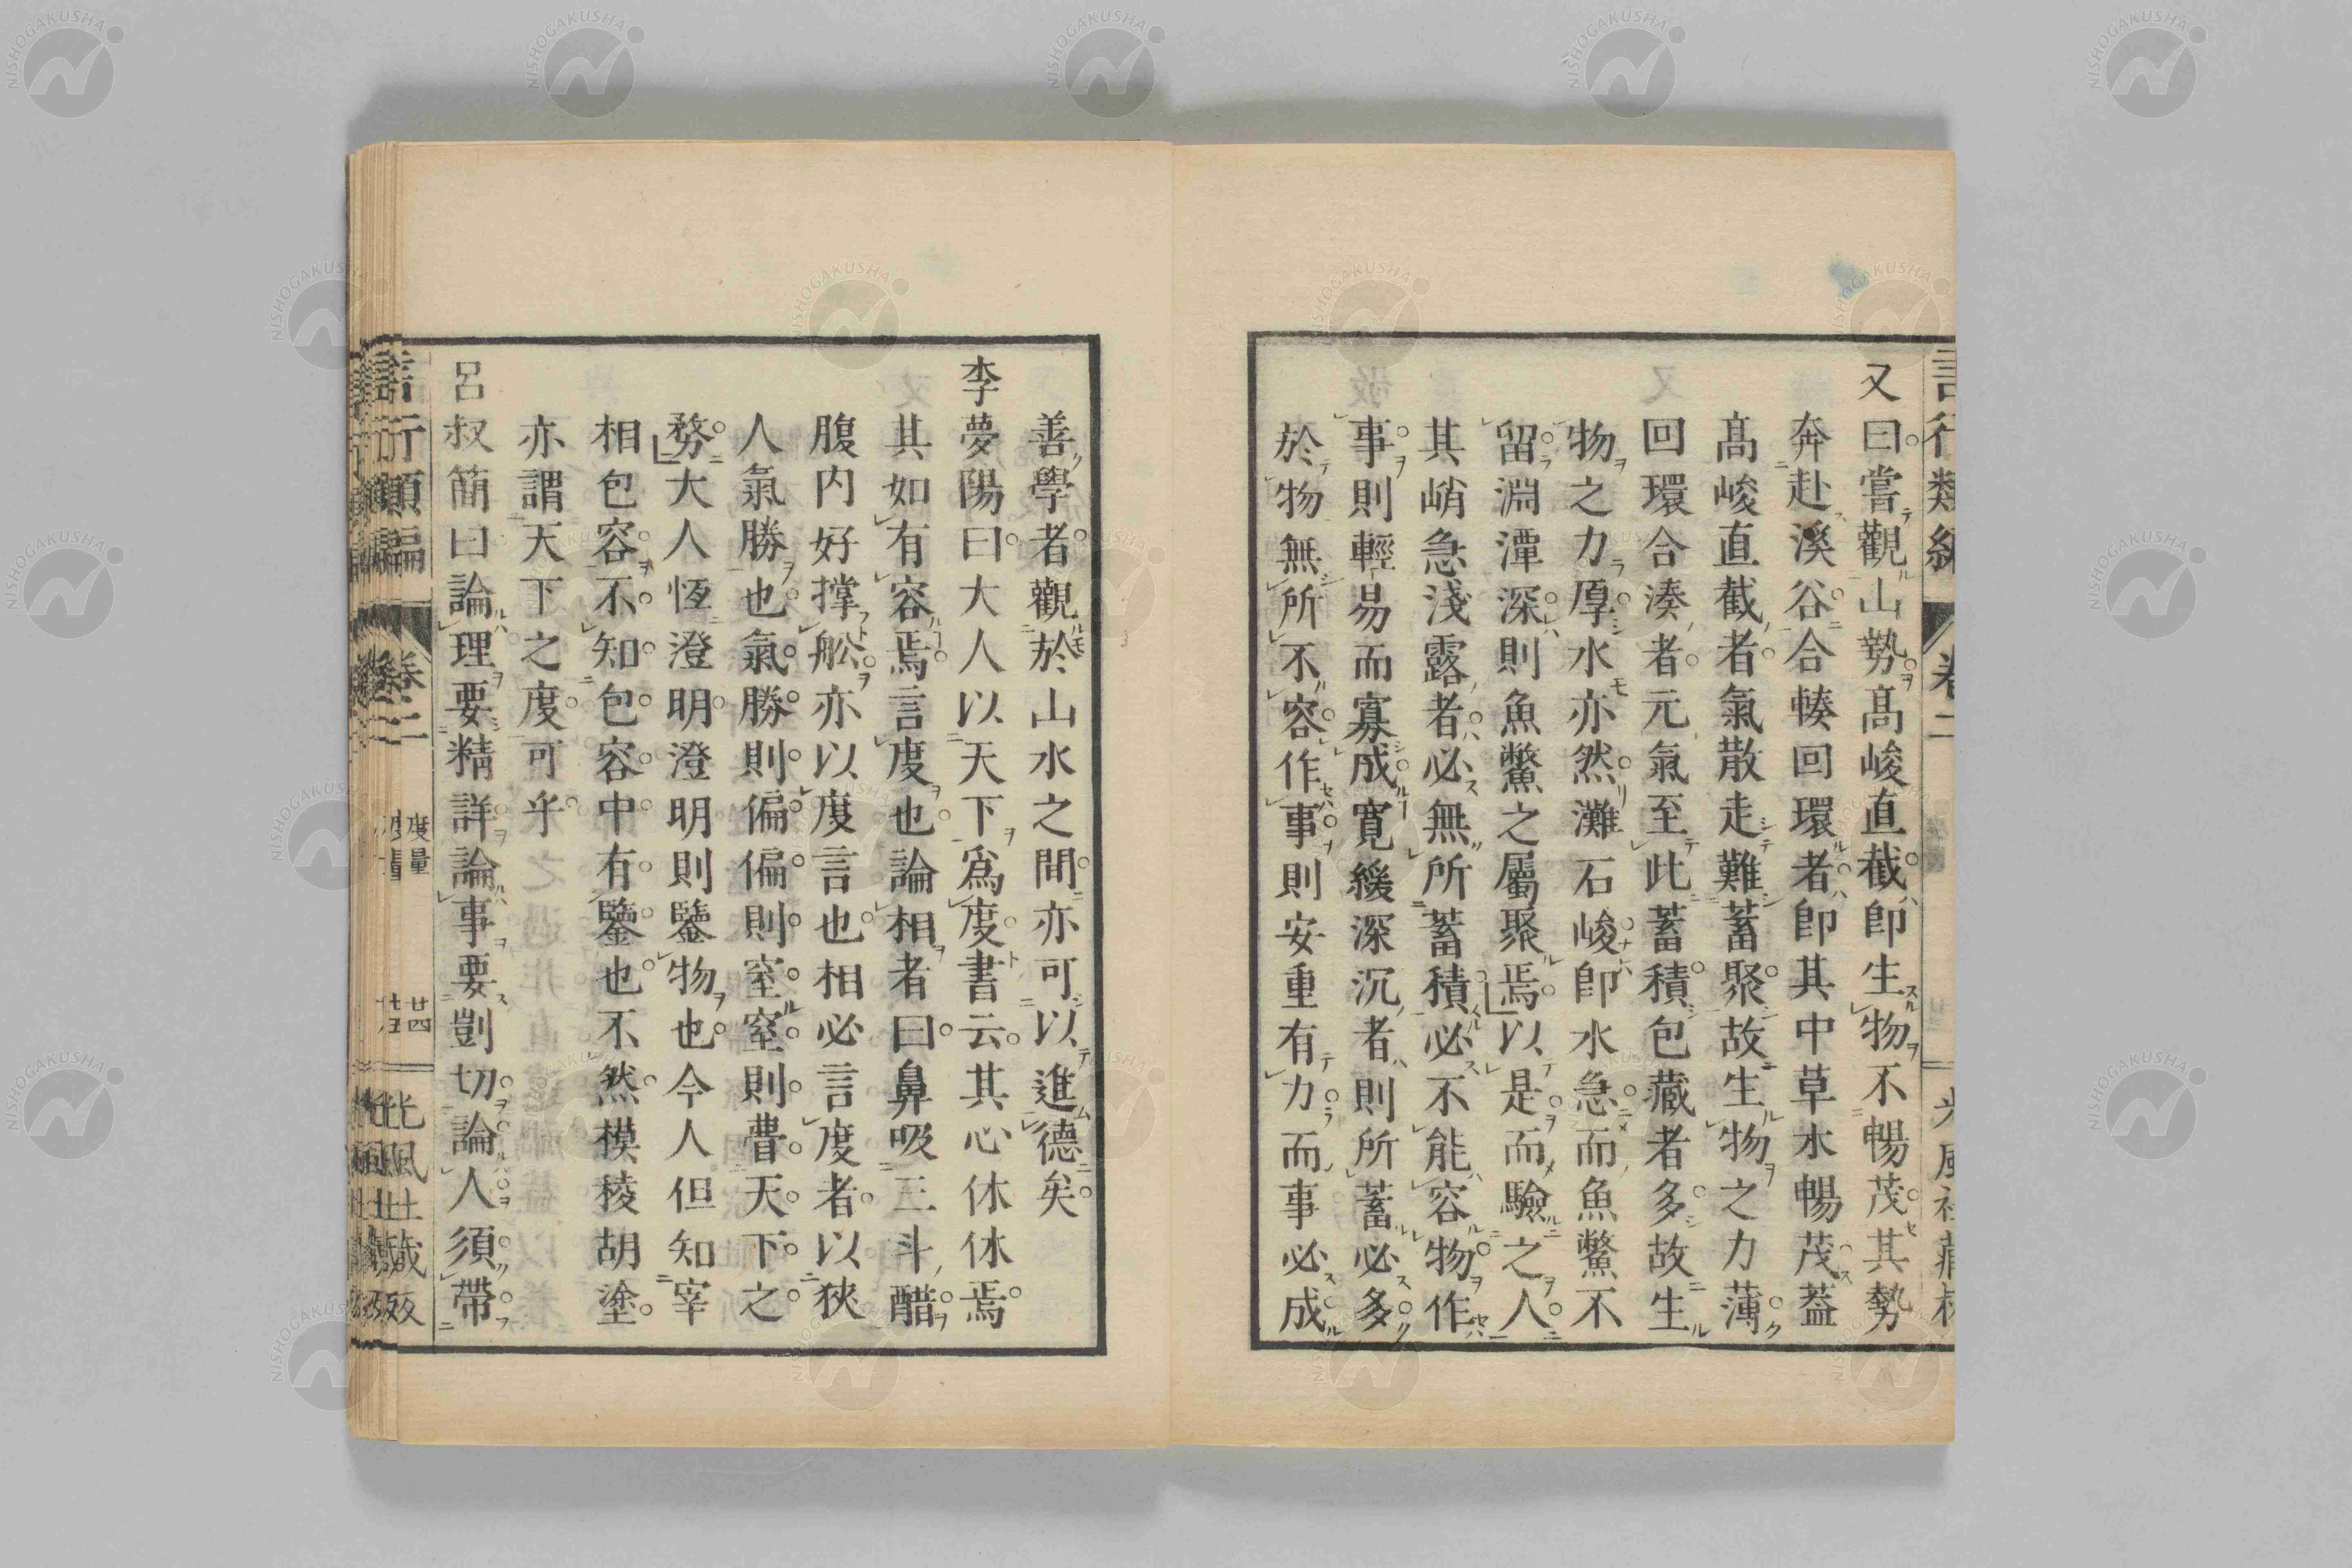 又曰嘗觀山勢高峻直截卽生物不暢茂其勢
奔赴溪谷合輳回環者卽其中草木暢茂蓋
高峻直截者氣散走難蓄聚故生物之力薄
回環合湊者元氣至此蓄積包藏者多故生
物之力厚水亦然灘石峻卽水急而魚鱉不
留淵潭深則魚鱉之屬聚焉以是而驗之人
其峭急淺露者必無所蓄積必不能容物作
事則輕易而寡成寬緩深沉者則所蓄必多
於物無所不容作事則安重有力而事必成
善學者觀於山水之間亦可以進德矣
李夢陽曰大人以天下爲度書云其心休休焉
其如有容焉言度也論相者曰鼻吸三斗醋
腹内好撑舩亦以度言也相必言度者以狹
人氣勝也氣勝則偏偏則室窒則瞢天下之
務大人恆澄明澄明則鑒物也今人但知宰
相包容不知包容中有鑒也不然模稜胡塗
亦謂天下之度可乎
呂叔簡曰論理要精詳論事要剴切論人須帶
言行類編
卷二
度量
廿四
光風社藏板
NISHOGAKUSHA